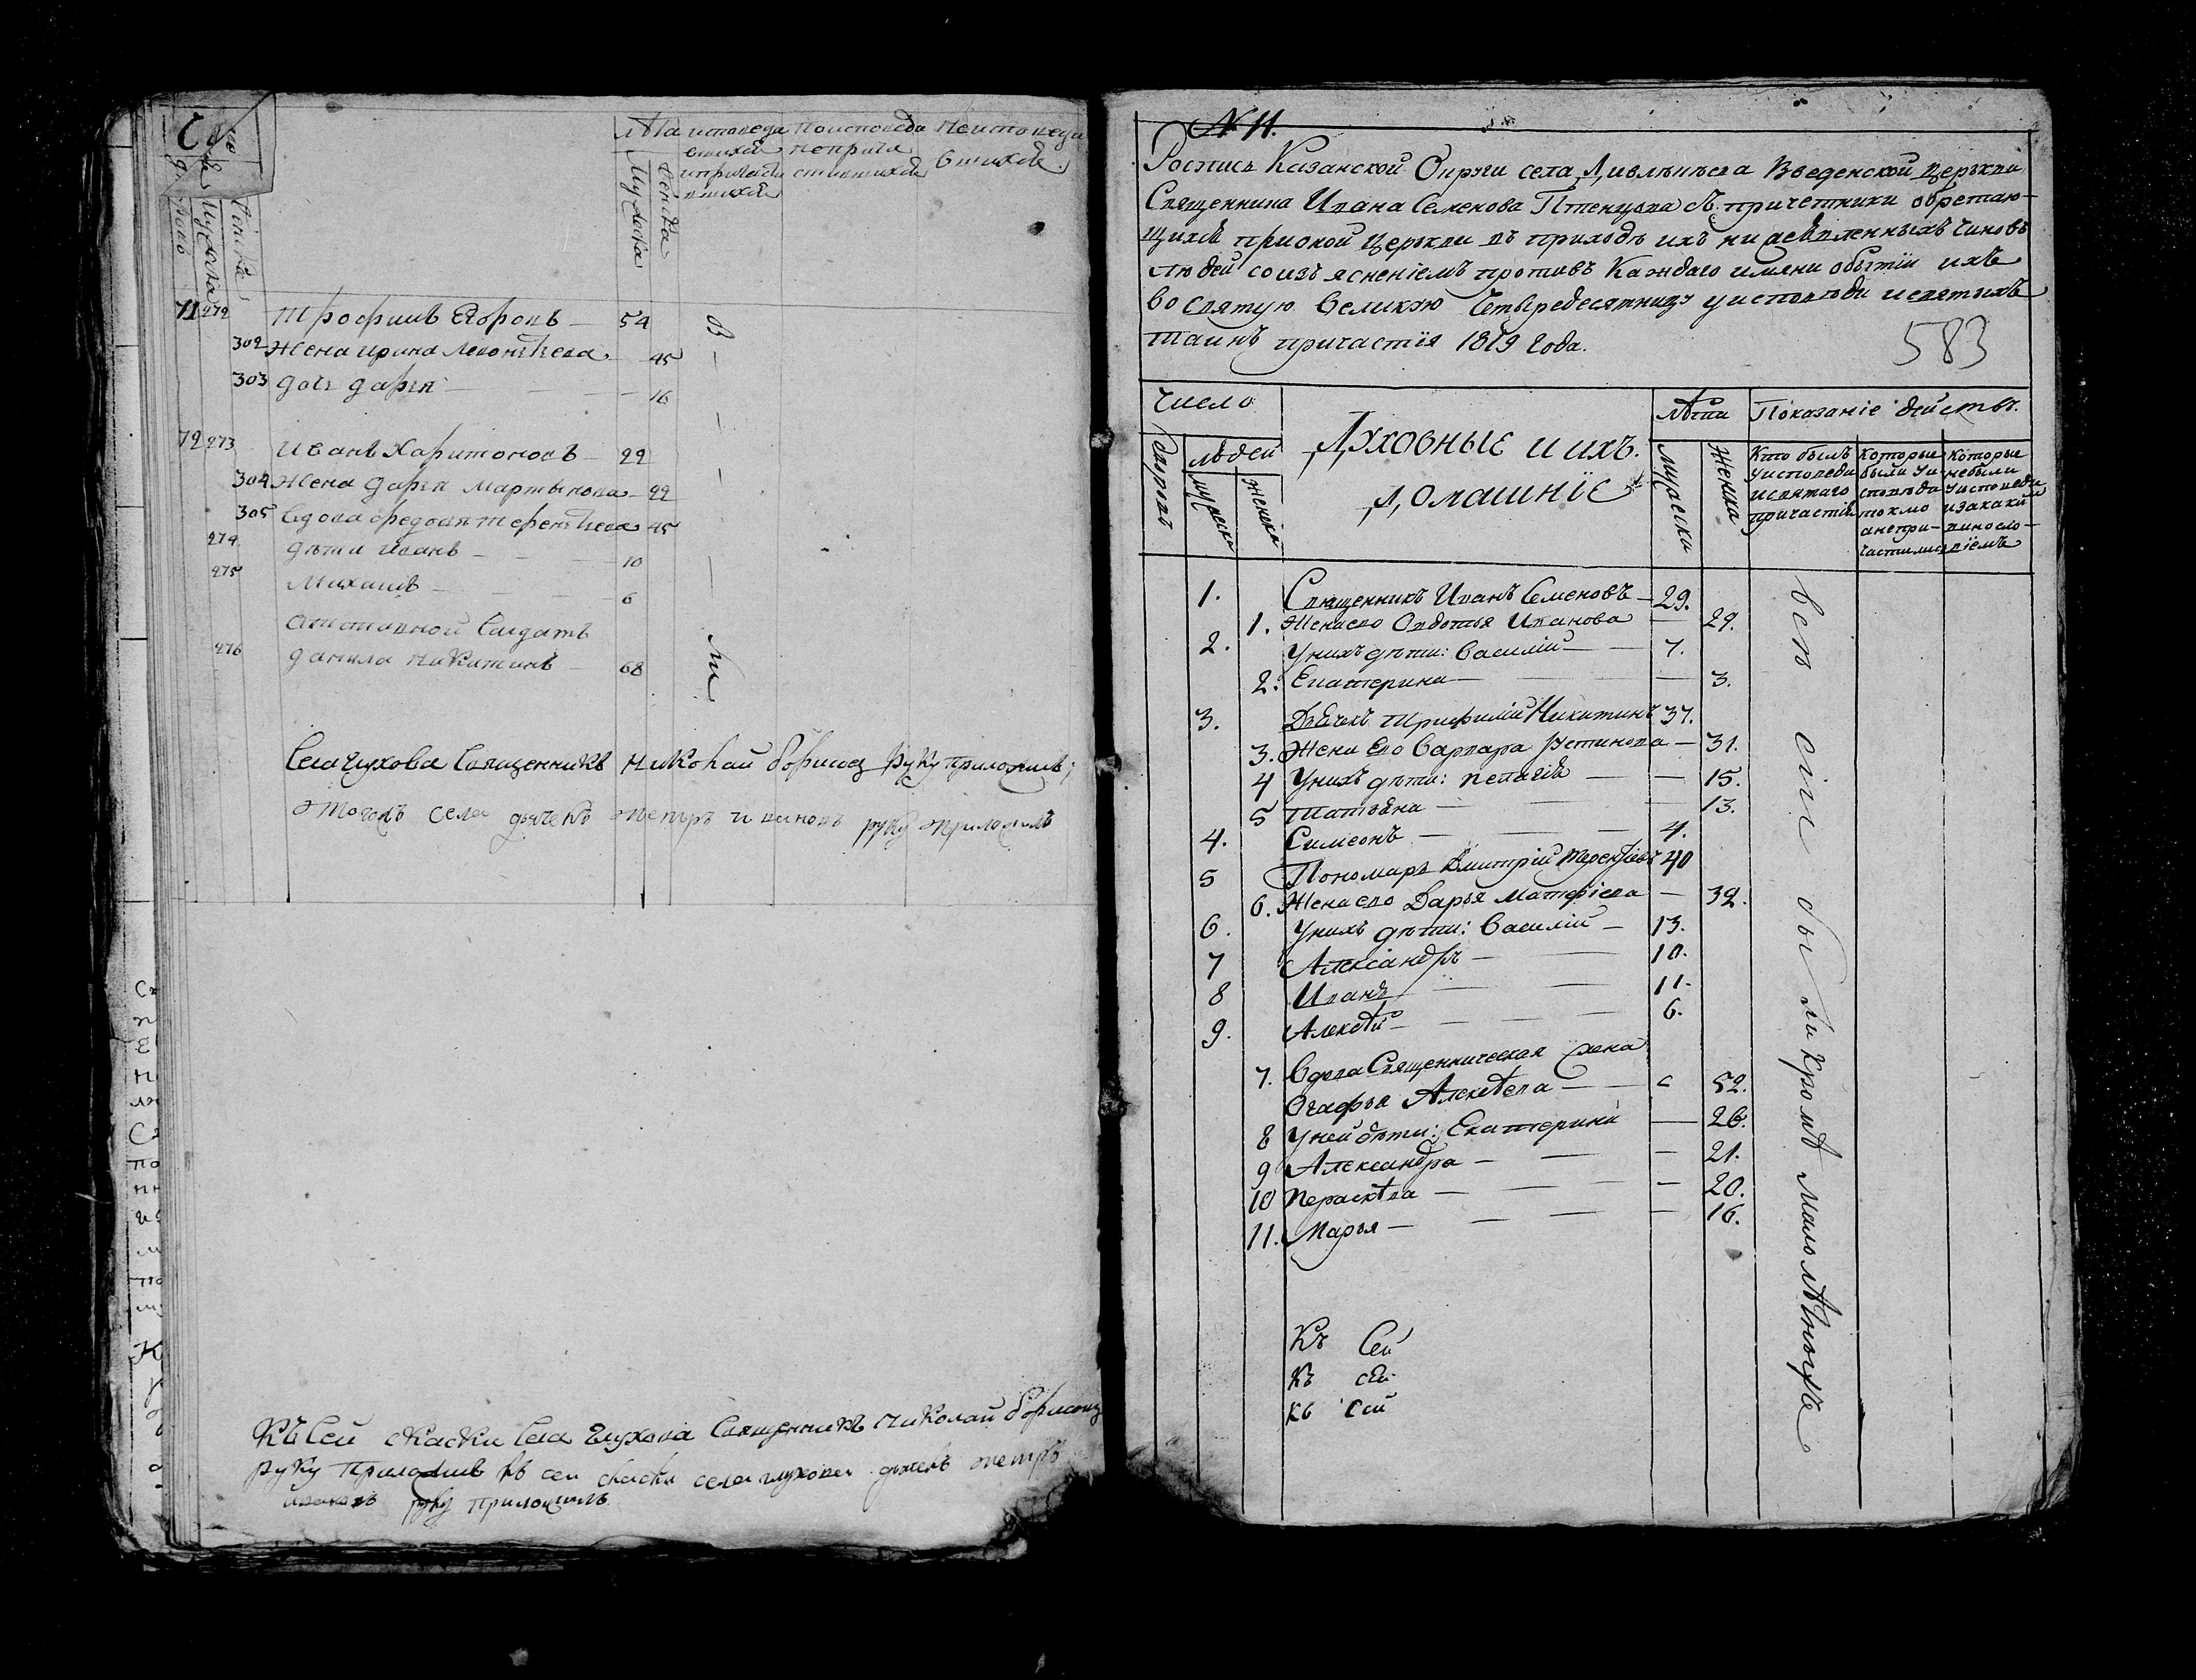 Число
Лѣта
Мужеска
Женска
71 272 Трофимъ Егоровъ — 54
302 Жена Ирина Леонтьева — 45
303 дочь дарья — 16
72 273 Иванъ Харитоновъ — 22
304 Жена дарья Мартынова — 22
305 Вдова федосья терентьева 45
274 дѣти Иванъ — 10
275 Михаилъ — 6
Отставной Салдатъ
276 данила Никитинъ — 68
Села Глухова Священникъ Николай борисовъ руку приложилъ;
Тогожъ села дьячекъ петръ ивановъ руку приложилъ
Къ Сей скаски села Глухова Священникъ Николай борисовъ
руку приложилъ къ сей скаски села глухова дьячекъ петръ
ивановъ руку приложилъ
№ 11.
Роспись Казанской Округи села Введенской церькви
Священника Ивана Семенова Птенцова съ причетники обретаю-
щихся прионой церькви въ приходѣ ихъ чиновъ
людей соизъясненіемъ противъ каждаго имяни обытіи ихъ
во святую великую Четыредесятницу уисповѣди исвятыхъ
таинъ причастія 1819 года.
583
Число
Людей
мужеска
женска
Духовные и ихъ
домашніе
Лѣта
мужеска
женска
Показаніе действъ.
Кто былъ уисповеди исвятаго причастія
Которые были уисповѣди токмо анепричастились
Которые небыли уисповеди изакакимъ винословіемъ
1. Священникъ Иванъ Семеновъ — 29.
1. Жена ево Овдотья Иванова — 29.
2. Унихъ дѣти: Василій — 7.
2. Екатерина — 3.
3. Дьячекъ Трифилій Никитинъ 37.
3. Жена Ево Варвара Устинова — 31.
4 Унихъ дѣти: Пелагія — 15.
5 Татьяна — 13.
4. Симеонъ — 4.
5 Пономарь Дмитрій Терентьевъ 40
6. Жена ево Дарья Матфіева — 32.
6. Унихъ дѣти: Василій — 13.
7 Александръ — 10.
8 Иванъ — 11.
9. Алексѣй — 6.
7. Вдова Священническая жена
Огафья Алексѣева — 52.
8 Уней дѣти: Екатерина — 26.
9 Александра — 21.
10 Пераскѣва — 20.
11. Марья — 16.
Всѣ сіи были кромѣ малолѣтныхъ
Къ Сей
Къ сей
Къ Сей